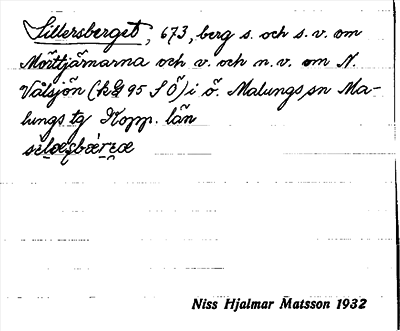 Sillersberget, 673, berg s. och s. v. om
Mörttjärnarna och v. och n. v. om N.
Valsjön (kG 95 S Ö) i ö. Malungs sn Ma-
lungs tg Kopp. län
Niss Hjalmar Matsson 1932